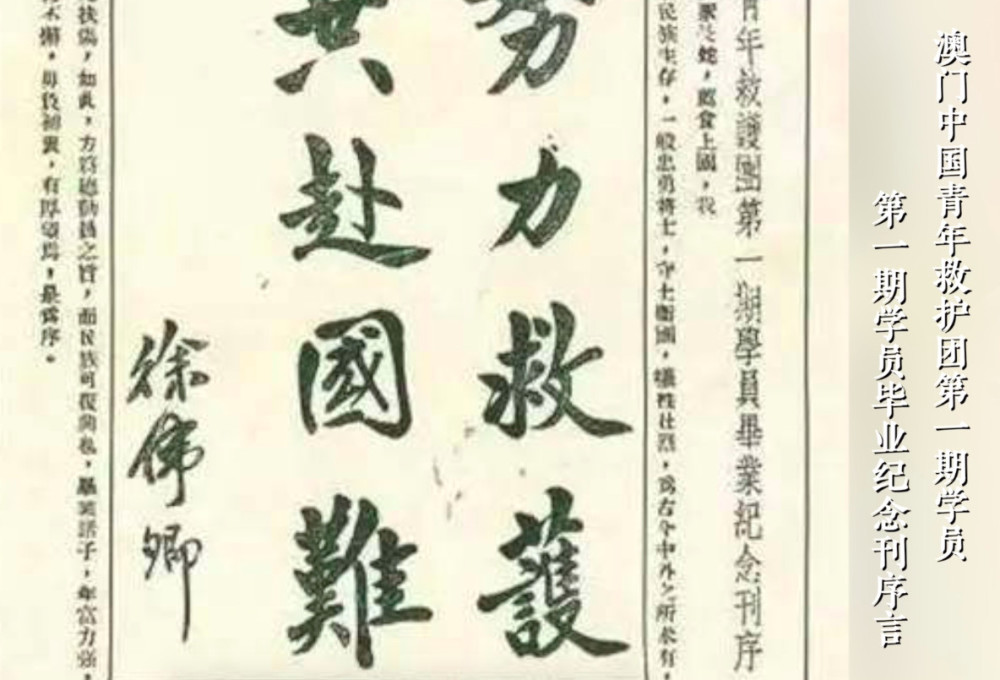 澳门中国青年救护团第一期学员
第一期学员毕业纪念刊序言
青年救護團第一期學員畢業紀念刊序
蛇，薦食上國，我
民族生存，一般忠勇將士，守土衛國，犧牲壯烈，為古今中外之所未有，
努力救護
共赴國難
徐偉卿
扶傷，如此，方為德勤揚之旨，而民族可復興也，畢業諸子，年富力強，
不懈，毋負初衷，有厚望焉，是為序。